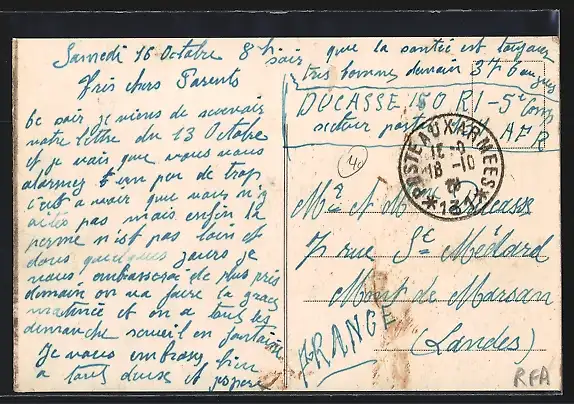 Samedi 16 Octobre 8h soir
Mes chers Parents
Ce soir je viens de recevoir
votre lettre du 13 Octobre
et je vais que vous vous
alarmez un peu de trop
c'est a voir que vous n'y
aites pas mais enfin la
perme n'est pas loin et
dans quelques jours je
vous embrasserai de plus près
demain on va faire la grasse
matinée et on a tous les
dimanche
Je vous embrasse bien
a tous deux et
que la santé est toujours
très bonne demain 376
DUCASSE 150 RI - 5e Comp
secteur postal AFR
POSTE AUX ARMEES
18-10
*131*
40
Mr et Mme Ducasse
7 rue St Médard
Mont de Marsan
(Landes)
FRANCE
RFA